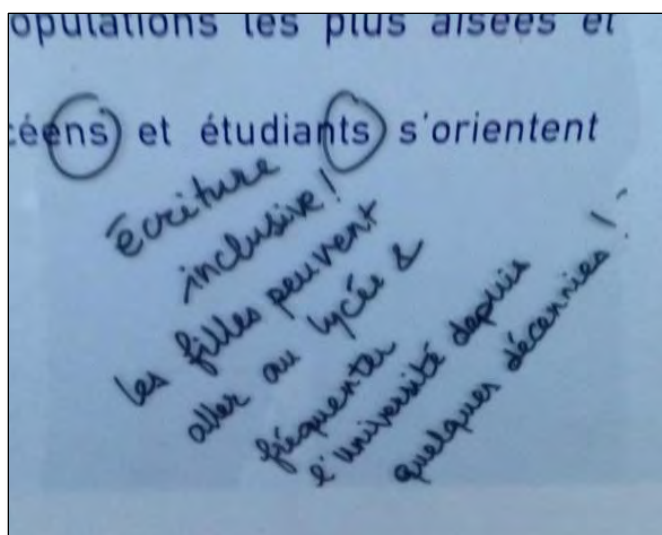 opulations les plus aisées et
céens et étudiants s'orientent
écriture
inclusive !
les filles peuvent
aller au lycée &
fréquenter
l'université depuis
quelques décennies !